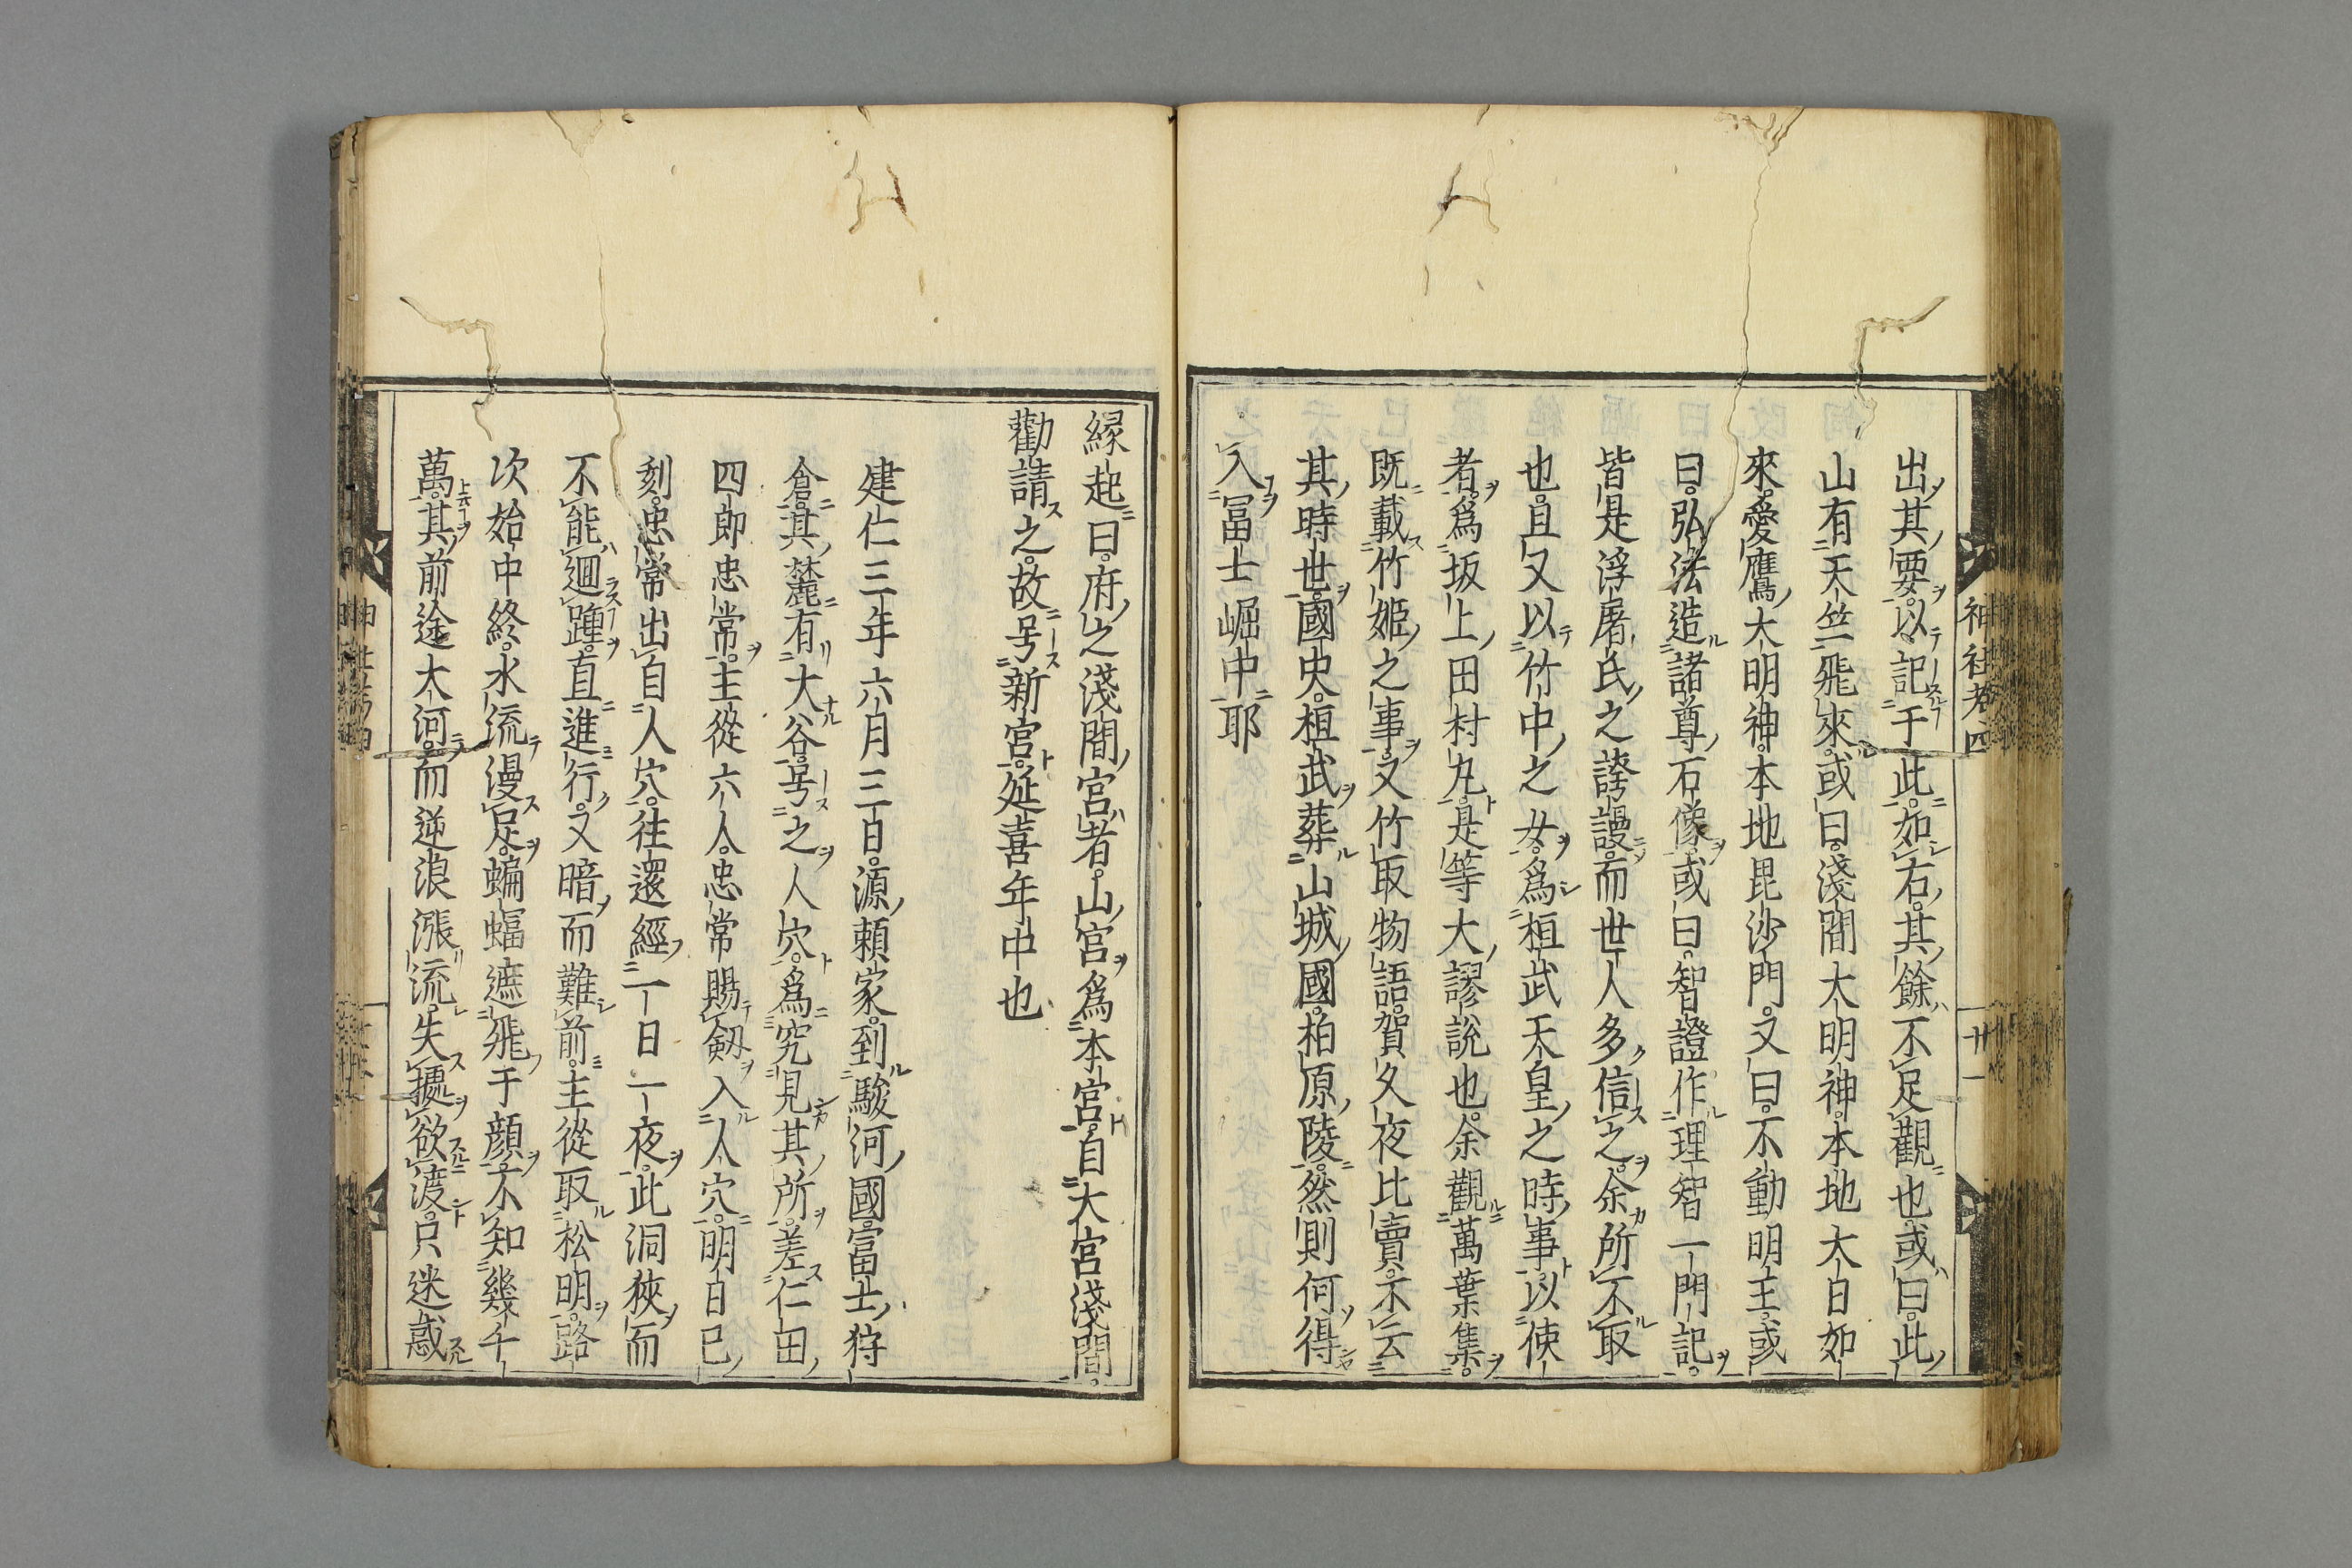 神社考四
廿一
出其要以記于此如右其餘不足觀也或曰此
山有天竺飛來或曰淺間大明神本地大日如
來愛鷹大明神本地毘沙門又曰不動明王或
曰弘法造諸尊石像或曰智證作理智一門記
皆是浮屠氏之誇謾而世人多信之余所不取
也且又以竹中之女爲桓武天皇之時事以使
者爲坂上田村丸是等大謬説也余觀萬葉集
既載竹姫之事又竹取物語賀久夜比賣不云
其時世國史桓武葬山城國柏原陵然則何得
入冨士崛中耶
縁起曰府之淺間宮者山宮爲本宮自大宮淺間
勸請之故号新宮延喜年中也
建仁三年六月三日源頼家到駿河國富士狩
倉其麓有大谷号之人穴爲究見其所差仁田
四郎忠常主從六人忠常賜劔入人穴明日巳
刻忠常出自人穴往還經一日一夜此洞狹而
不能廻踵直進行又暗而難前主從取松明路
次始中終水流漫足蝙蝠遮飛于顔不知幾千
萬其前途大河而逆浪漲流失據欲渡只迷惑